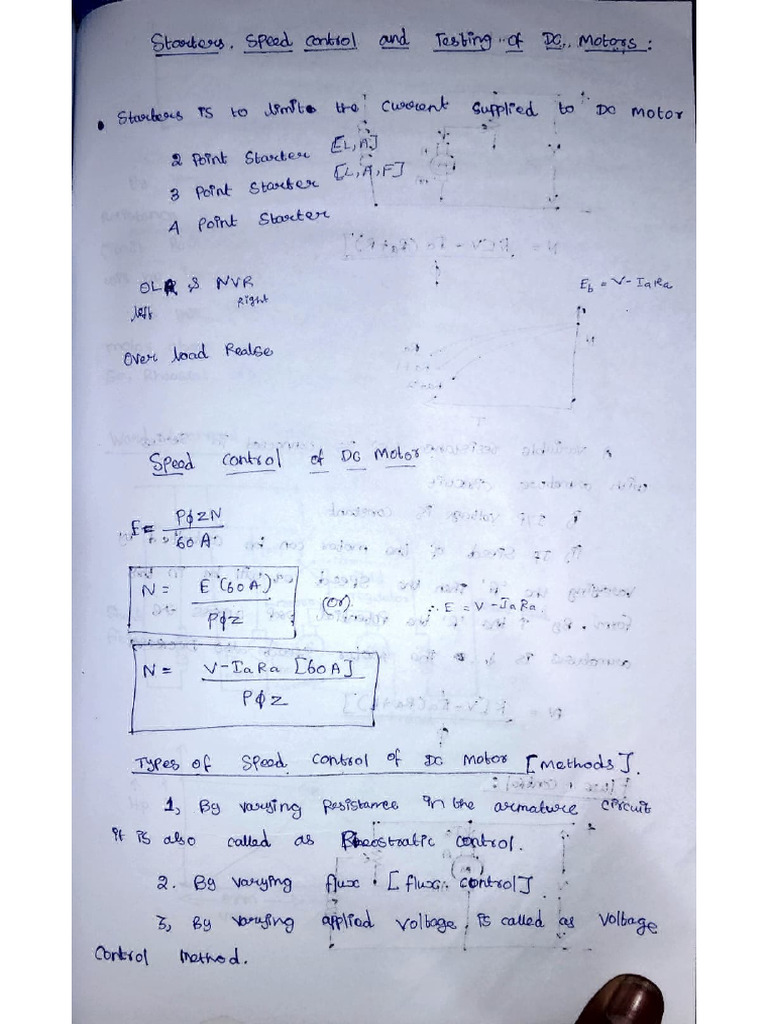 Starters, Speed control and Testing of DC Motors:
• Starters is to limits the current supplied to DC Motor
2 Point Starter [L,A]
3 Point Starter [L,A,F]
4 Point Starter
OLR & NVR
left Right
Eb = V-IaRa
Over load Realse
Speed control of DC Motor:
E = PϕZN / 60A
N = E(60A) / PϕZ (or) ∴ E = V-IaRa
N = V-IaRa [60A] / PϕZ
Types of Speed control of DC Motor [Methods].
1, By varying Resistance in the armature circuit
it is also called as Rheostratic control.
2. By varying flux [flux control]
3, By varying applied voltage is called as voltage
control Method.